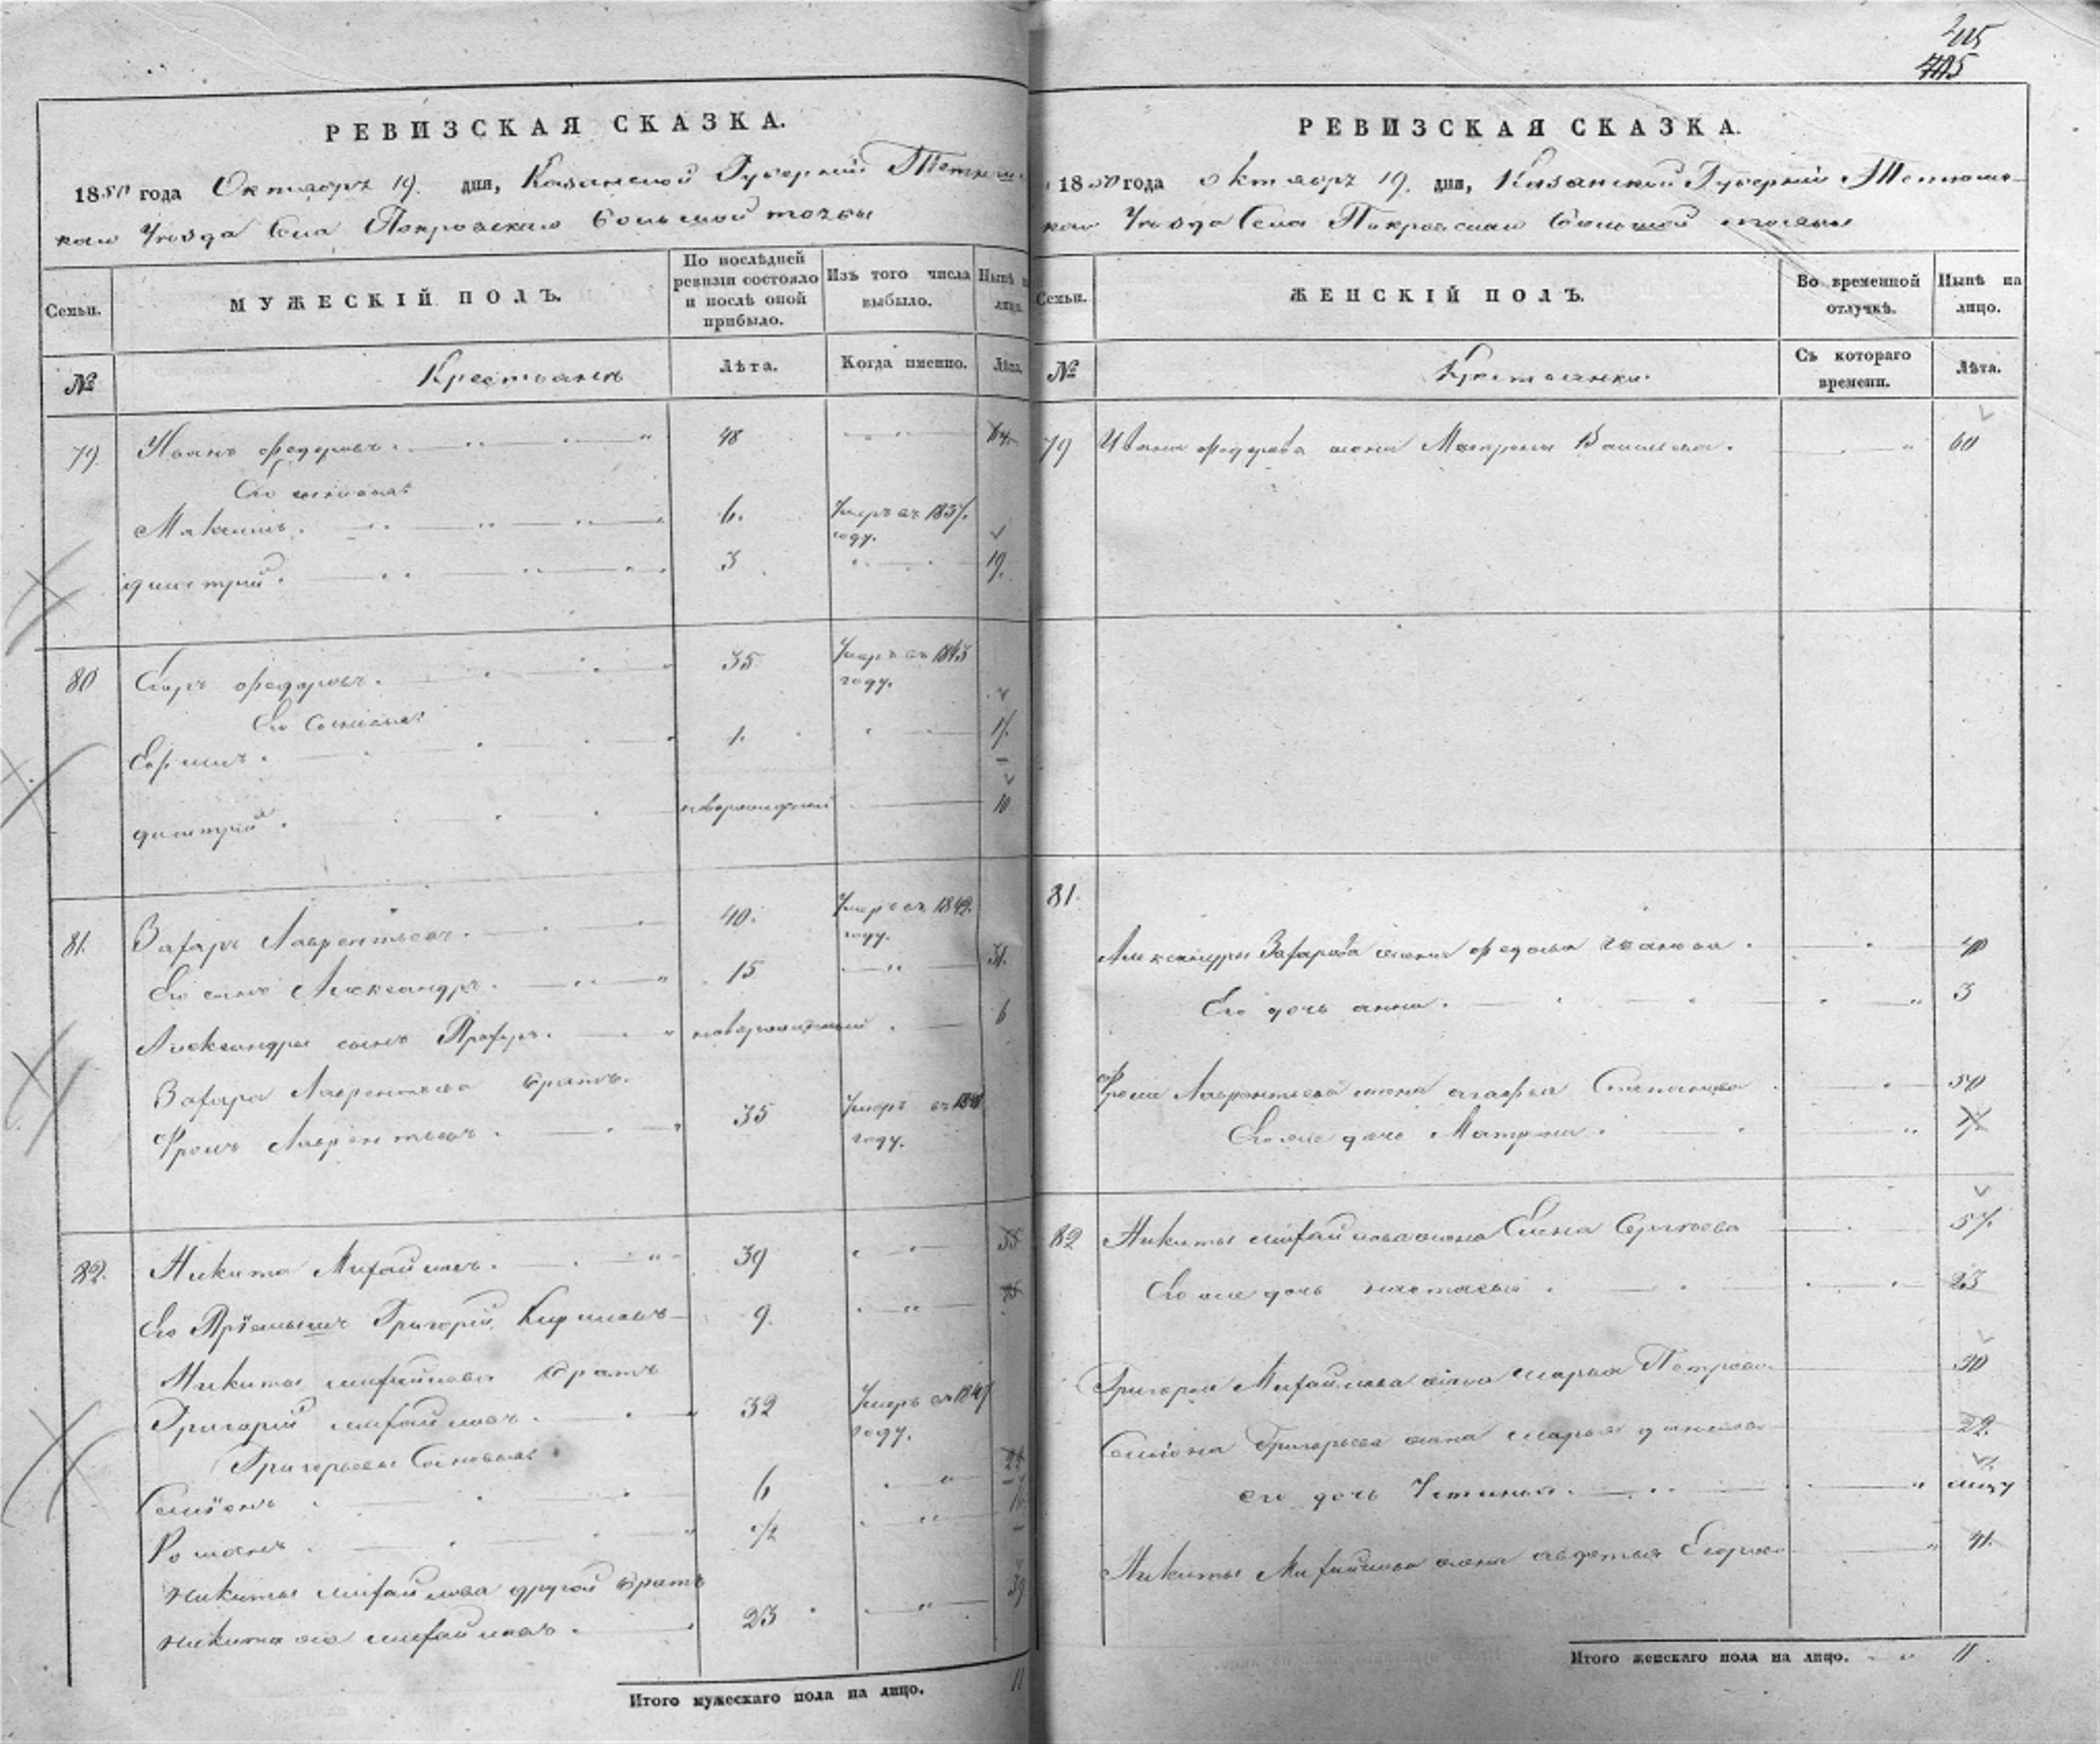 215
405
РЕВИЗСКАЯ СКАЗКА.
1850 года Октября 19. дня, Казанской Губерніи Тетюш-
каго Уѣзда Села Покровскаго Большой тоябы
Семьи. МУЖЕСКІЙ ПОЛЪ. По послѣдней ревизіи состояло и послѣ оной прибыло. Изъ того числа выбыло. Нынѣ на лицо.
№ Крестьянъ Лѣта. Когда именно. Лѣта.
79. Иванъ Федоровъ. 48
Его сыновья:
Максимъ. 6. Умеръ въ 1837. году.
Дмитрій. 3 19.
80 Федоровъ. 35 Умеръ въ 1843 году.
Его Сыновья:
Ефимъ. 1. 17.
Дмитрій. новорожденный 10
81. Захаръ Лаврентьевъ. 40. Умеръ въ 1849. году.
Его сынъ Александръ. 15 31.
Александры сынъ новорожденный 6
Захара Лаврентьева братъ.
Фролъ Лаврентьевъ. 35 Умеръ въ году.
82. Никита Михайловъ. 39 55
Его Пріемышъ Григорій Кириловъ 9.
Никиты Михайлова братъ
Григорій Михайловъ. 32 Умеръ въ 1847 году.
Григорьевы Сыновья:
Семіонъ 6
Романъ. 1/2
Никиты Михайлова другой братъ
Никита же Михайловъ. 23 39
Итого мужескаго пола на лицо. 11
РЕВИЗСКАЯ СКАЗКА.
1850 года Октября 19. дня, Казанской Губерніи Тетюш-
каго Уѣзда Села Покровскаго Большой тоябы
Семьи. ЖЕНСКІЙ ПОЛЪ. Во временной отлучкѣ. Нынѣ на лицо.
№ Крестьянки. Съ котораго времени. Лѣта.
79 Ивана Федорова жена Матрена Васильева. 60
81.
Александры Захарова жена Федосья Иванова. 40
Его дочь Анна. 3
Фрола Лаврентьева жена Агафья Степанова 50
Его же дочь Матрена.
82 Никиты Михайлова жена Елена Сергѣева 57.
Его же дочь Настасья. 23
Григорья Михайлова жена Марья Петрова 50
Семіона Григорьева жена Марья Данилова 22.
Его дочь Устинья.
Никиты Михайлова жена Авдотья Егорова 41.
Итого женскаго пола на лицо. 11.